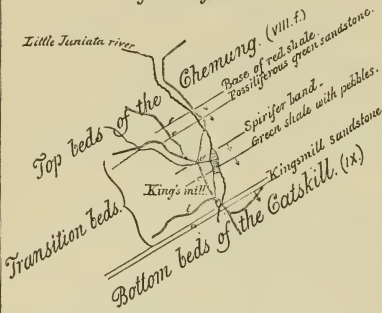 Little Juniata river
Top beds of the Chemung. (VIII.f.)
Base of red shale.
Fossiliferous green sandstone.
Spirifer band.
Green shale with pebbles.
King's mill.
Kingsmill sandstone
Transition beds.
Bottom beds of the Catskill. (IX)